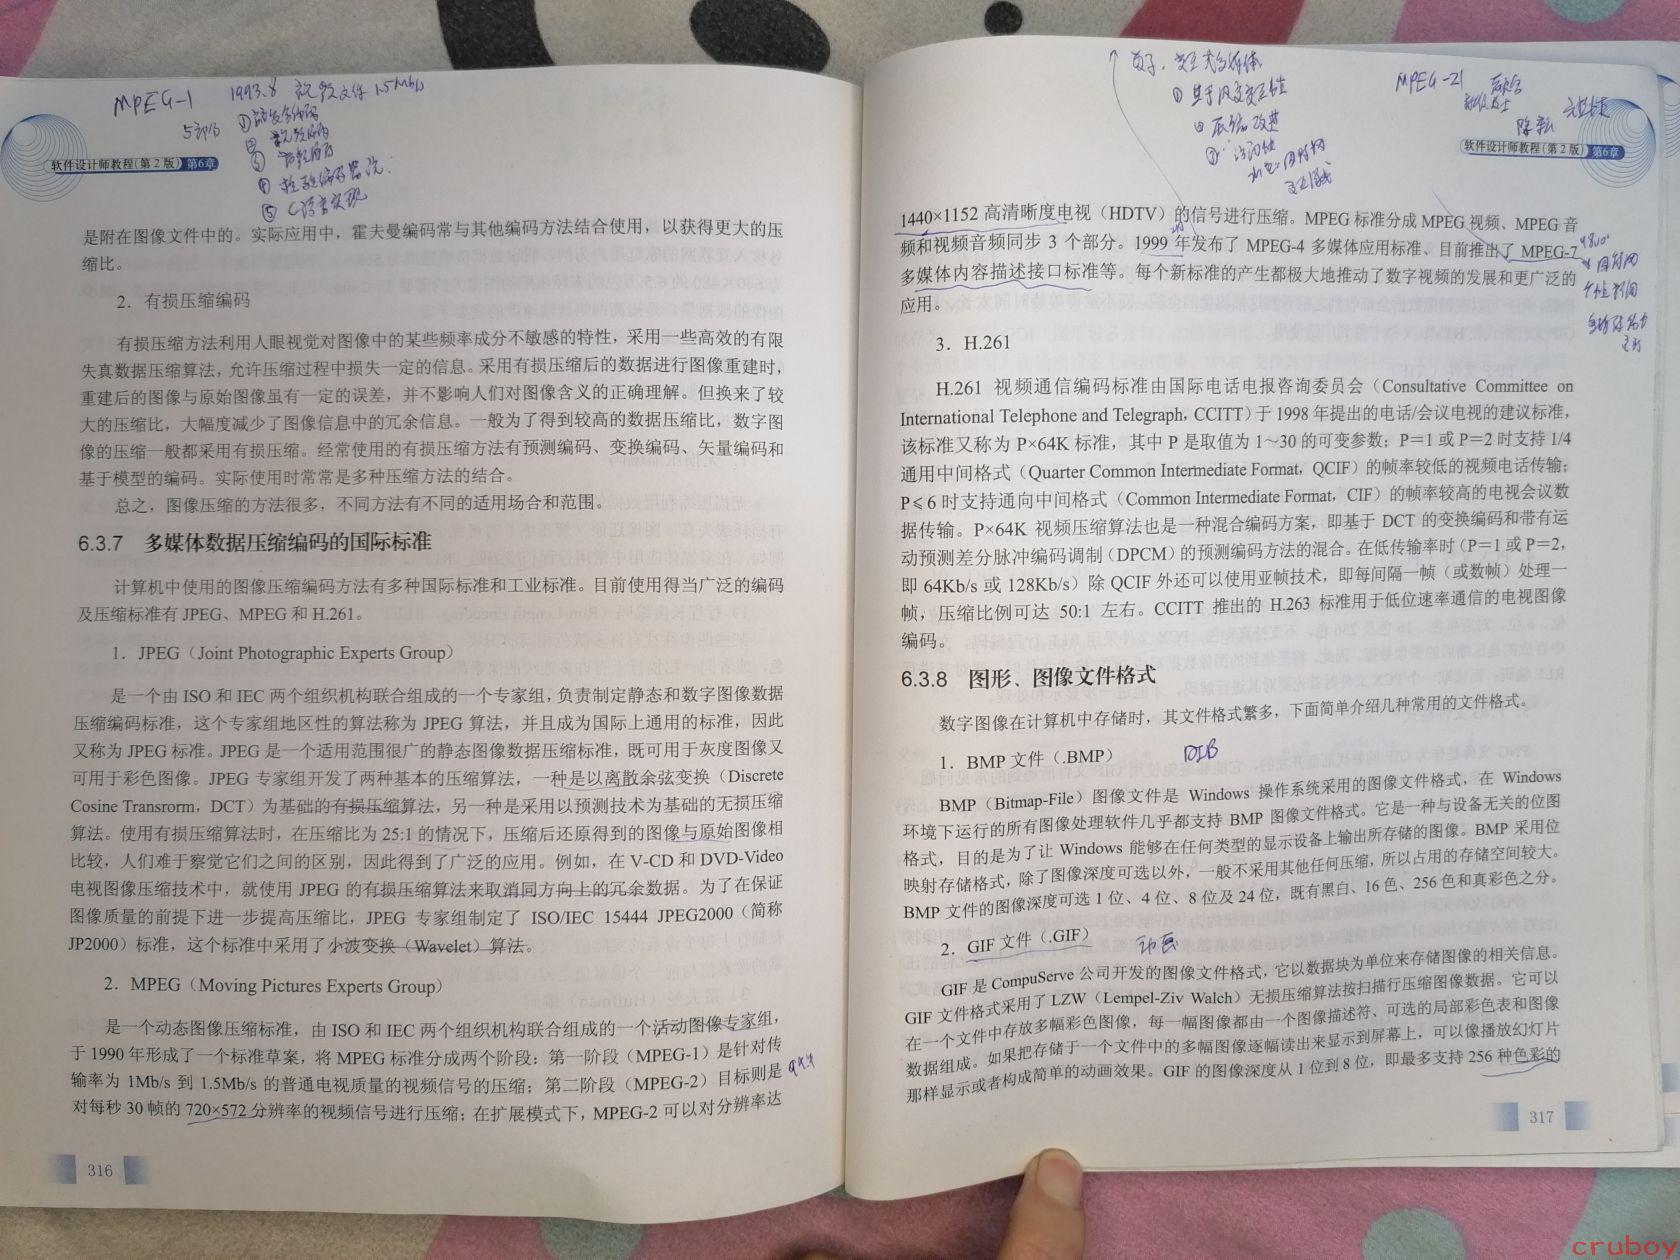 MPEG-1 1993.8 视频文件 1.5Mb/s
5部分
⑤ C语言实现
软件设计师教程(第2版) 第6章
是附在图像文件中的。实际应用中，霍夫曼编码常与其他编码方法结合使用，以获得更大的压
缩比。
2．有损压缩编码
有损压缩方法利用人眼视觉对图像中的某些频率成分不敏感的特性，采用一些高效的有限
失真数据压缩算法，允许压缩过程中损失一定的信息。采用有损压缩后的数据进行图像重建时，
重建后的图像与原始图像虽有一定的误差，并不影响人们对图像含义的正确理解。但换来了较
大的压缩比，大幅度减少了图像信息中的冗余信息。一般为了得到较高的数据压缩比，数字图
像的压缩一般都采用有损压缩。经常使用的有损压缩方法有预测编码、变换编码、矢量编码和
基于模型的编码。实际使用时常常是多种压缩方法的结合。
总之，图像压缩的方法很多，不同方法有不同的适用场合和范围。
6.3.7 多媒体数据压缩编码的国际标准
计算机中使用的图像压缩编码方法有多种国际标准和工业标准。目前使用得当广泛的编码
及压缩标准有 JPEG、MPEG 和 H.261。
1．JPEG（Joint Photographic Experts Group）
是一个由 ISO 和 IEC 两个组织机构联合组成的一个专家组，负责制定静态和数字图像数据
压缩编码标准，这个专家组地区性的算法称为 JPEG 算法，并且成为国际上通用的标准，因此
又称为 JPEG 标准。JPEG 是一个适用范围很广的静态图像数据压缩标准，既可用于灰度图像又
可用于彩色图像。JPEG 专家组开发了两种基本的压缩算法，一种是以离散余弦变换（Discrete
Cosine Transrorm，DCT）为基础的有损压缩算法，另一种是采用以预测技术为基础的无损压缩
算法。使用有损压缩算法时，在压缩比为 25:1 的情况下，压缩后还原得到的图像与原始图像相
比较，人们难于察觉它们之间的区别，因此得到了广泛的应用。例如，在 V-CD 和 DVD-Video
电视图像压缩技术中，就使用 JPEG 的有损压缩算法来取消同方向上的冗余数据。为了在保证
图像质量的前提下进一步提高压缩比，JPEG 专家组制定了 ISO/IEC 15444 JPEG2000（简称
JP2000）标准，这个标准中采用了小波变换（Wavelet）算法。
2．MPEG（Moving Pictures Experts Group）
是一个动态图像压缩标准，由 ISO 和 IEC 两个组织机构联合组成的一个活动图像专家组，
于 1990 年形成了一个标准草案，将 MPEG 标准分成两个阶段：第一阶段（MPEG-1）是针对传
输率为 1Mb/s 到 1.5Mb/s 的普通电视质量的视频信号的压缩；第二阶段（MPEG-2）目标则是
对每秒 30 帧的 720×572 分辨率的视频信号进行压缩；在扩展模式下，MPEG-2 可以对分辨率达
316
MPEG-21
软件设计师教程(第2版) 第6章
1440×1152 高清晰度电视（HDTV）的信号进行压缩。MPEG 标准分成 MPEG 视频、MPEG 音
频和视频音频同步 3 个部分。1999 年发布了 MPEG-4 多媒体应用标准、目前推出了 MPEG-7
多媒体内容描述接口标准等。每个新标准的产生都极大地推动了数字视频的发展和更广泛的
应用。
3．H.261
H.261 视频通信编码标准由国际电话电报咨询委员会（Consultative Committee on
International Telephone and Telegraph，CCITT）于 1998 年提出的电话/会议电视的建议标准，
该标准又称为 P×64K 标准，其中 P 是取值为 1～30 的可变参数；P＝1 或 P＝2 时支持 1/4
通用中间格式（Quarter Common Intermediate Format，QCIF）的帧率较低的视频电话传输；
P≤6 时支持通向中间格式（Common Intermediate Format，CIF）的帧率较高的电视会议数
据传输。P×64K 视频压缩算法也是一种混合编码方案，即基于 DCT 的变换编码和带有运
动预测差分脉冲编码调制（DPCM）的预测编码方法的混合。在低传输率时（P＝1 或 P＝2，
即 64Kb/s 或 128Kb/s）除 QCIF 外还可以使用亚帧技术，即每间隔一帧（或数帧）处理一
帧，压缩比例可达 50:1 左右。CCITT 推出的 H.263 标准用于低位速率通信的电视图像
编码。
6.3.8 图形、图像文件格式
数字图像在计算机中存储时，其文件格式繁多，下面简单介绍几种常用的文件格式。
1．BMP 文件（.BMP） DIB
BMP（Bitmap-File）图像文件是 Windows 操作系统采用的图像文件格式，在 Windows
环境下运行的所有图像处理软件几乎都支持 BMP 图像文件格式。它是一种与设备无关的位图
格式，目的是为了让 Windows 能够在任何类型的显示设备上输出所存储的图像。BMP 采用位
映射存储格式，除了图像深度可选以外，一般不采用其他任何压缩，所以占用的存储空间较大。
BMP 文件的图像深度可选 1 位、4 位、8 位及 24 位，既有黑白、16 色、256 色和真彩色之分。
2．GIF 文件（.GIF） 动画
GIF 是 CompuServe 公司开发的图像文件格式，它以数据块为单位来存储图像的相关信息。
GIF 文件格式采用了 LZW（Lempel-Ziv Walch）无损压缩算法按扫描行压缩图像数据。它可以
在一个文件中存放多幅彩色图像，每一幅图像都由一个图像描述符、可选的局部彩色表和图像
数据组成。如果把存储于一个文件中的多幅图像逐幅读出来显示到屏幕上，可以像播放幻灯片
那样显示或者构成简单的动画效果。GIF 的图像深度从 1 位到 8 位，即最多支持 256 种色彩的
317
cruboy